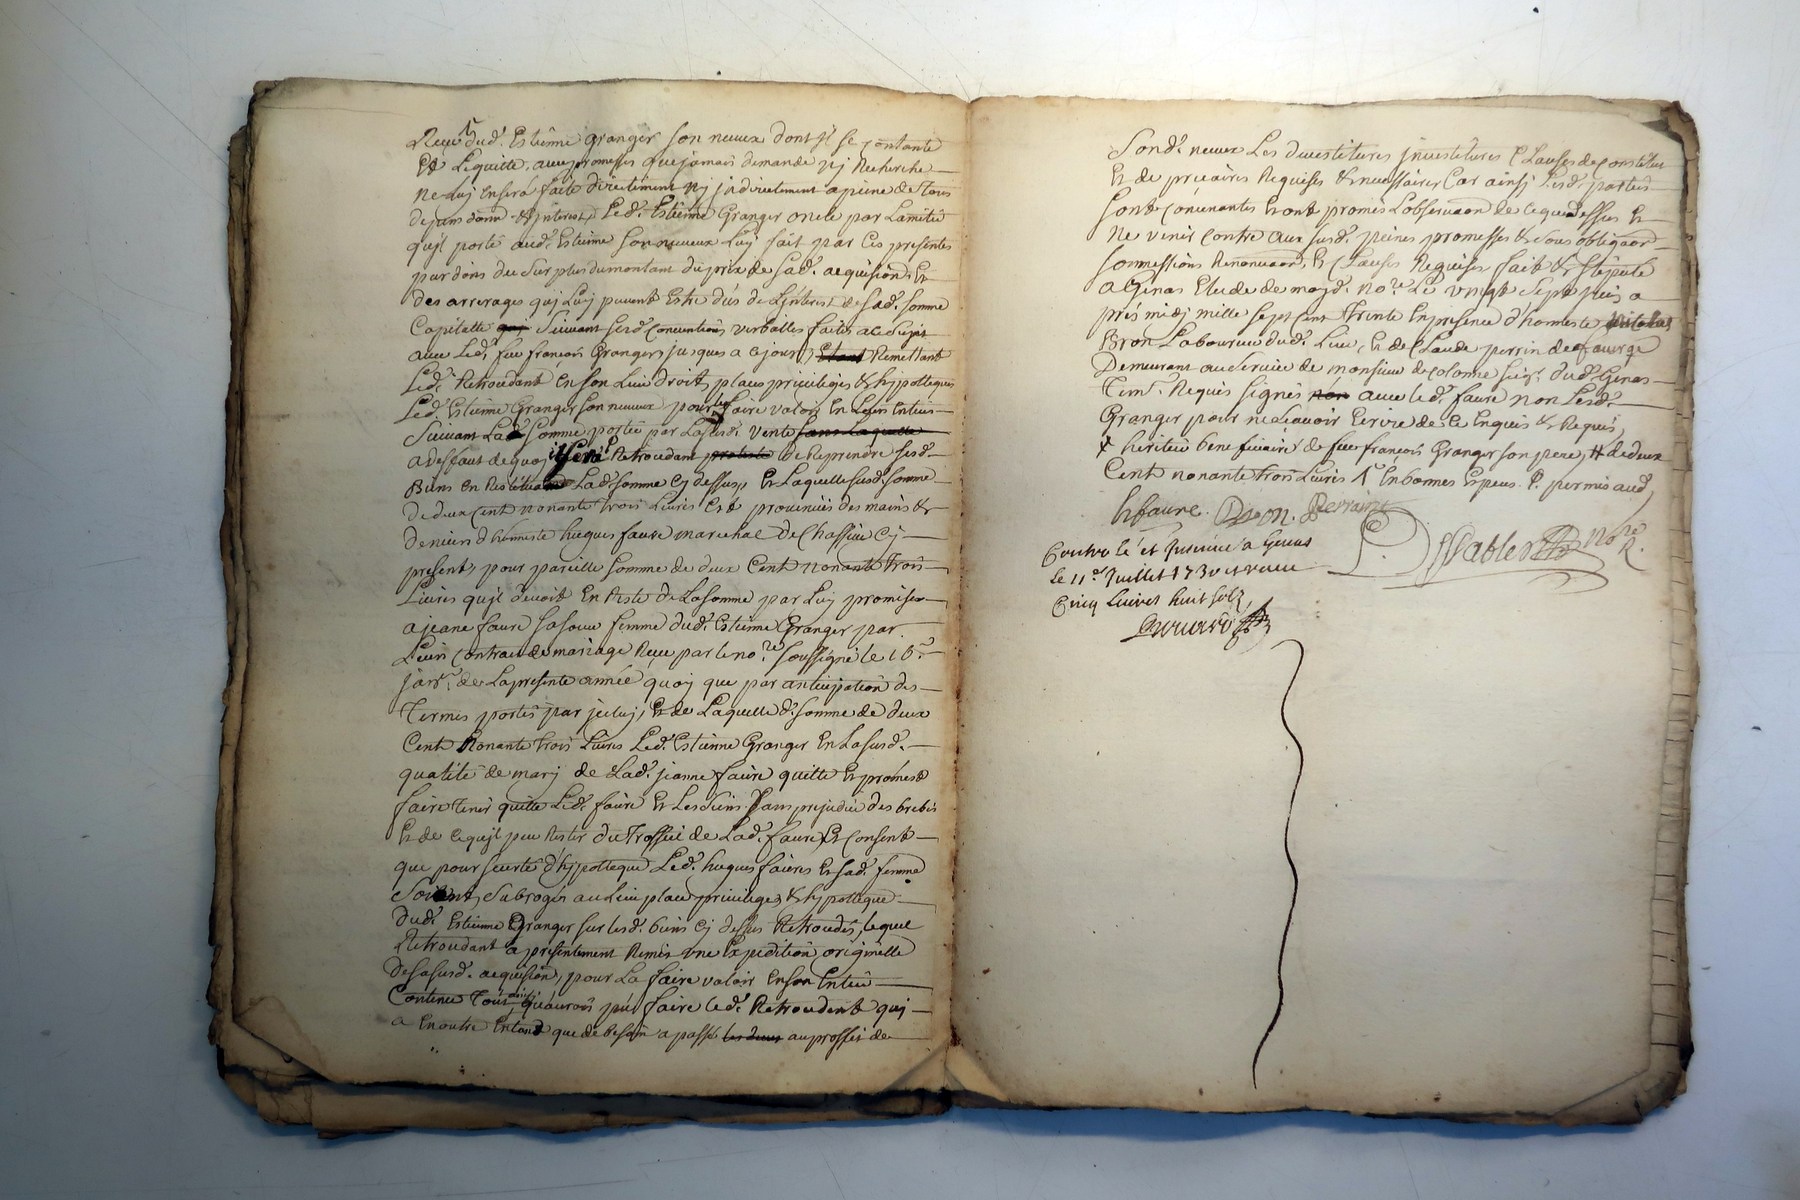 Receu dud. Estienne Granger son neveu dont jl se contante
Et L'equitte, avec promesses que jamais demande nj Recherche
ne Luj en sera faite directement nj jndirectement a peine de tous
depans dom. & jnterest, Led. Estienne Granger oncle par Lamitié
qu'jl porte aud. Estienne son neveux Luj fait par Ces presentes
par dons du surplus du montant du prix de sad. acquision, Et
des arrerages quj Luj peuvent Estre dus de L'jnterest de sad. somme
Capitalle quj suivant Sesd. Conventions verballes faites a ce sujet
avec Led. feu françois Granger, jusques a ce jour, Etant Remettant
Led. Retroudant En son Lieu droit, place privileges & hypotteques
Led. Estienne Granger son neveux pour les faire valoir En Leur Entier
Suivant Lad. Somme portée par La susd. vente sans laquelle
a deffaut de quoj il sera Retroudant proteste de Reprendre sesd.
Biens En Restituant Lad. somme Cj dessus, Et Laquelle susd. somme
de deux Cent nonante trois Livres Est provenües des mains &
deniers d'honneste hugues faure marechal de Chassieu Cj
present, pour pareille somme de deux Cent nonante trois
Livres qu'jl devoit En Reste de La somme par Luj promise
a jeane faure sa soeur femme dud. Estienne Granger par
Leur Contract de mariage Receu par le no.re soussigné le 16.e
janv.r de La presente année quoj que par anticipation des
Termes portés par jceluj, Et de Laquelle d. somme de deux
Cent Nonante trois Livres Led. Estienne Granger En La susd.
qualité de marj de Lad. jeanne faure quitte Et promest
faire tenir quitte Led. faure Et Les siens sans prejudice des brebis
Et de Ce qu'jl peu Rester du Trosseil de Lad. faure Et Consent
que pour seurté d'hypotteque Led. hugues faures Et sad. femme
Soient, Subrogés au Lieu place privileges & hypotteque
Dud. Estienne Granger sur lesd. biens Cj dessus Retroudés, lequel
Retroudant a presentement Remis une Expedition originelle
De sa susd. acquision, pour La faire valoir En son Entier
Contenu Tout ainsj qu'auroit peu faire led. Retroudent quj
a En outre Entand que de besoin a passé les deves au proffit de
Sond. neveu Les devestitures jnvestitures Clauses de Constitut
Et de precaires Requises & necessaires Car ainsj Lesd. parties
Sont Convenantes Et ont promis L'observaon de ce que dessus Et
Ne venir Contre aux susd. peines promesses & sous obligaon
Sommessions Renonvaon, Et Clauses Requises fait & stipulé
a Genas Etude de moyd. No.re Le vingt Sept juin a
prés midj mille sept cent Trente En presence d'honneste
Bron Laboureur dud. Lieu, Et de Claude perrin de
Demeurant au service de monsieur de colonne seig.r dud. Genas
Tem. Requis signés non avec led. faure non Lesd.
Granger pour ne scavoir Ecrire de Ce Enquis & Requis,
heritier beneficiaire de feu françois Granger son pere, # de deux
Cent nonante trois Livres 1 En bonnes Especes P. permis aud,
hfaure. Bron. Perrain
No.re R.
Controlé et Insinué a Genas
le 11.e Juillet 1730 et receu
Cinq Livres huit sols,